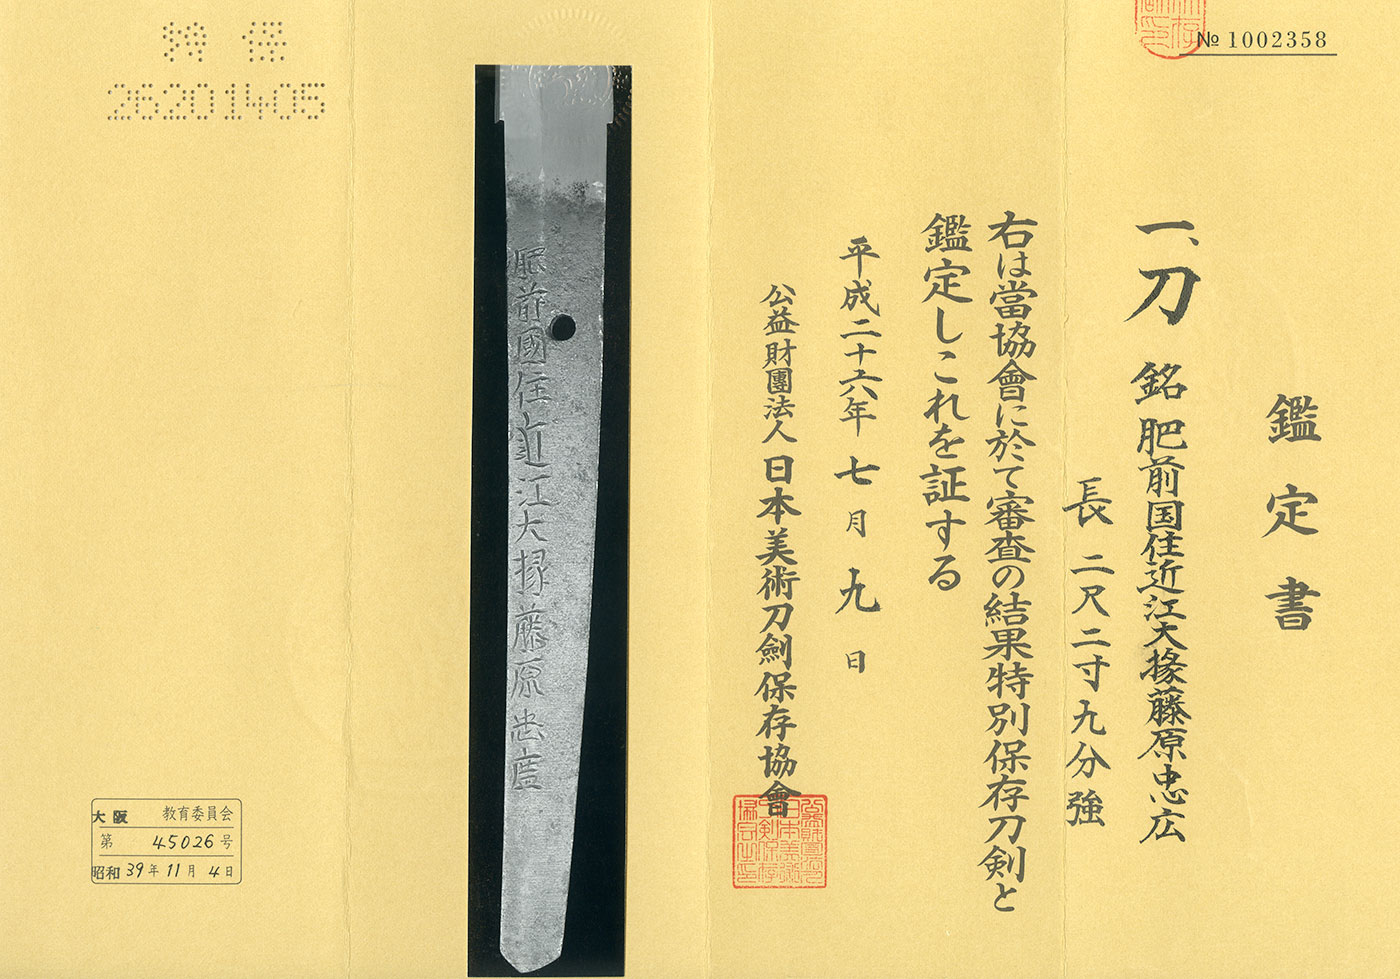 № 1002358
鑑定書
一、刀 銘 肥前国住近江大掾藤原忠広
長 二尺二寸九分強
右は當協會に於て審査の結果特別保存刀剣と
鑑定しこれを証する
平成二十六年 七月 九日
公益財團法人 日本美術刀劍保存協會
肥前國住近江大掾藤原忠廣
特 保
26201405
大阪 教育委員会
第 45026 号
昭和 39 年 11 月 4 日